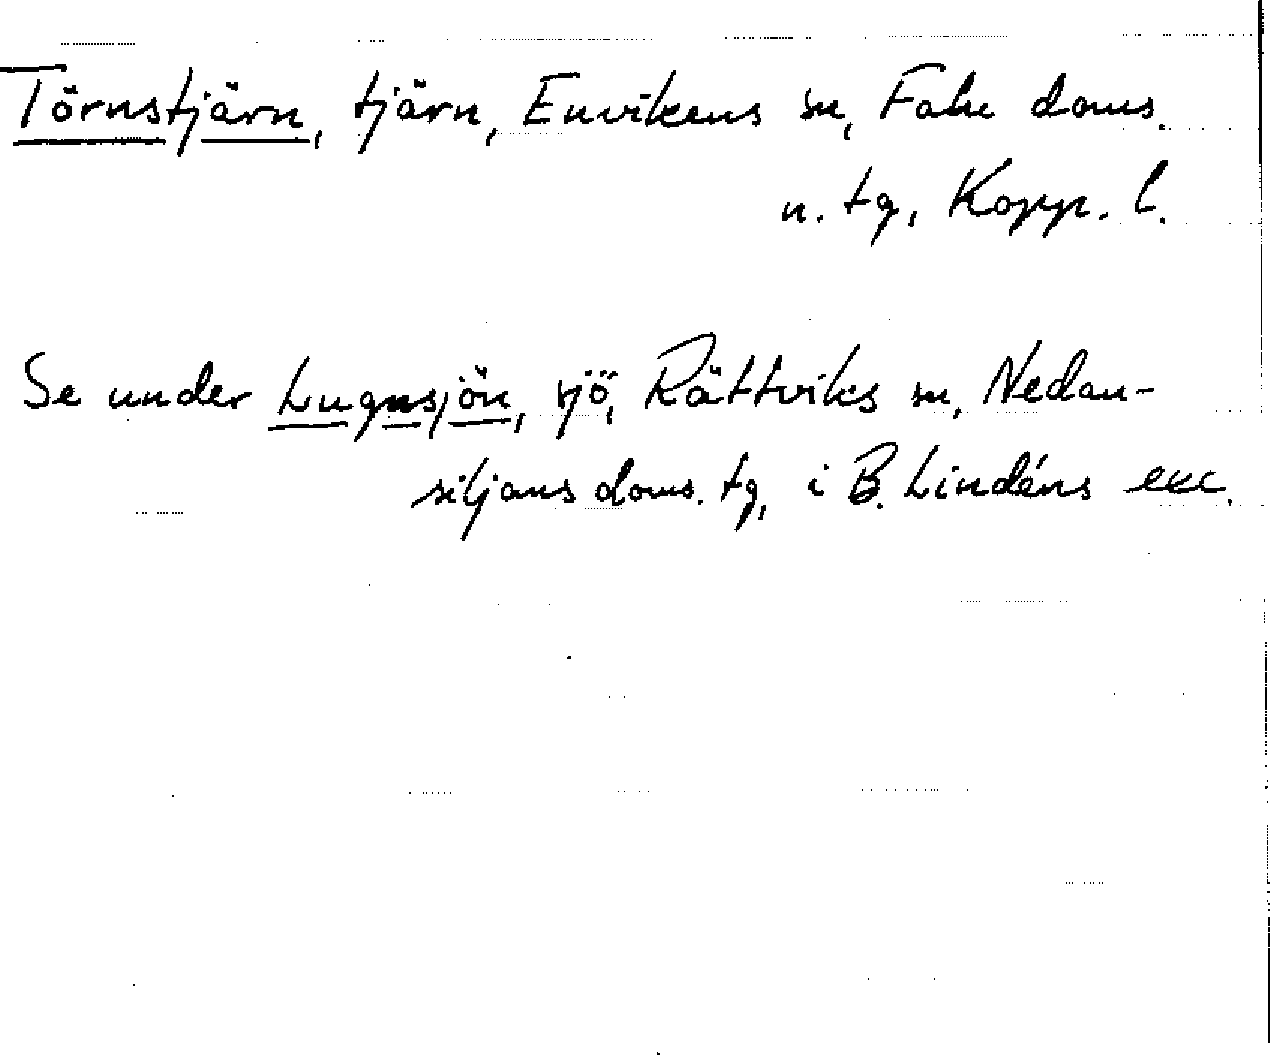 Törnstjärn, tjärn, Envikens sn, Falu doms.
n. tg, Kopp. l.
Se under Lugnsjön, sjö, Rättviks sn, Nedan-
siljans doms. tg, i B. Lindéns exc.